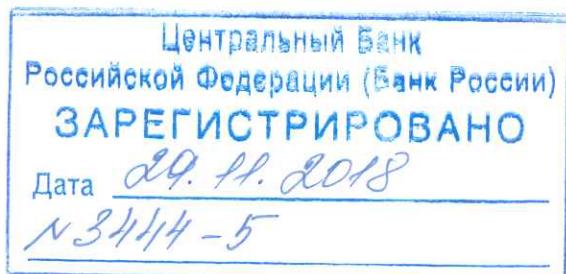 Центральный Банк
Российской Федерации (Банк России)
ЗАРЕГИСТРИРОВАНО
Дата 29.11.2018
N 3444-5